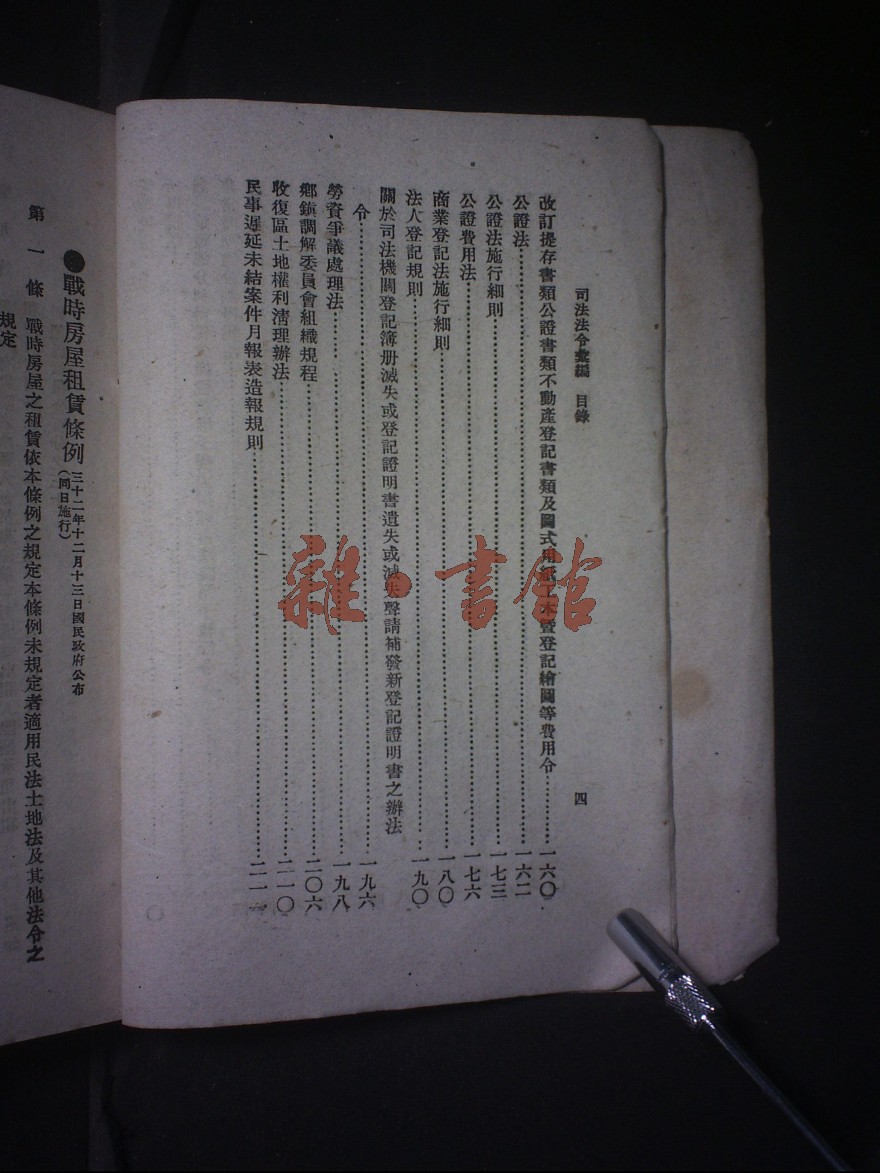 司法法令彙編　目錄　四
改訂提存書類公證書類不動產登記書類及圖式用紙工本暨登記繪圖等費用令…………一六〇
公證法…………一六二
公證法施行細則…………一七三
公證費用法…………一七六
商業登記法施行細則…………一八〇
法人登記規則…………一九〇
關於司法機關登記簿册滅失或登記證明書遺失或滅失聲請補發新登記證明書之辦法
令…………一九六
勞資爭議處理法…………一九八
鄉鎭調解委員會組織規程…………二〇六
收復區土地權利淸理辦法…………二一〇
民事遲延未結案件月報表造報規則…………二一一
●戰時房屋租賃條例
三十二年十二月十三日國民政府公布
(同日施行)
第一條　戰時房屋之租賃依本條例之規定本條例未規定者適用民法土地法及其他法令之
規定
雜·書館